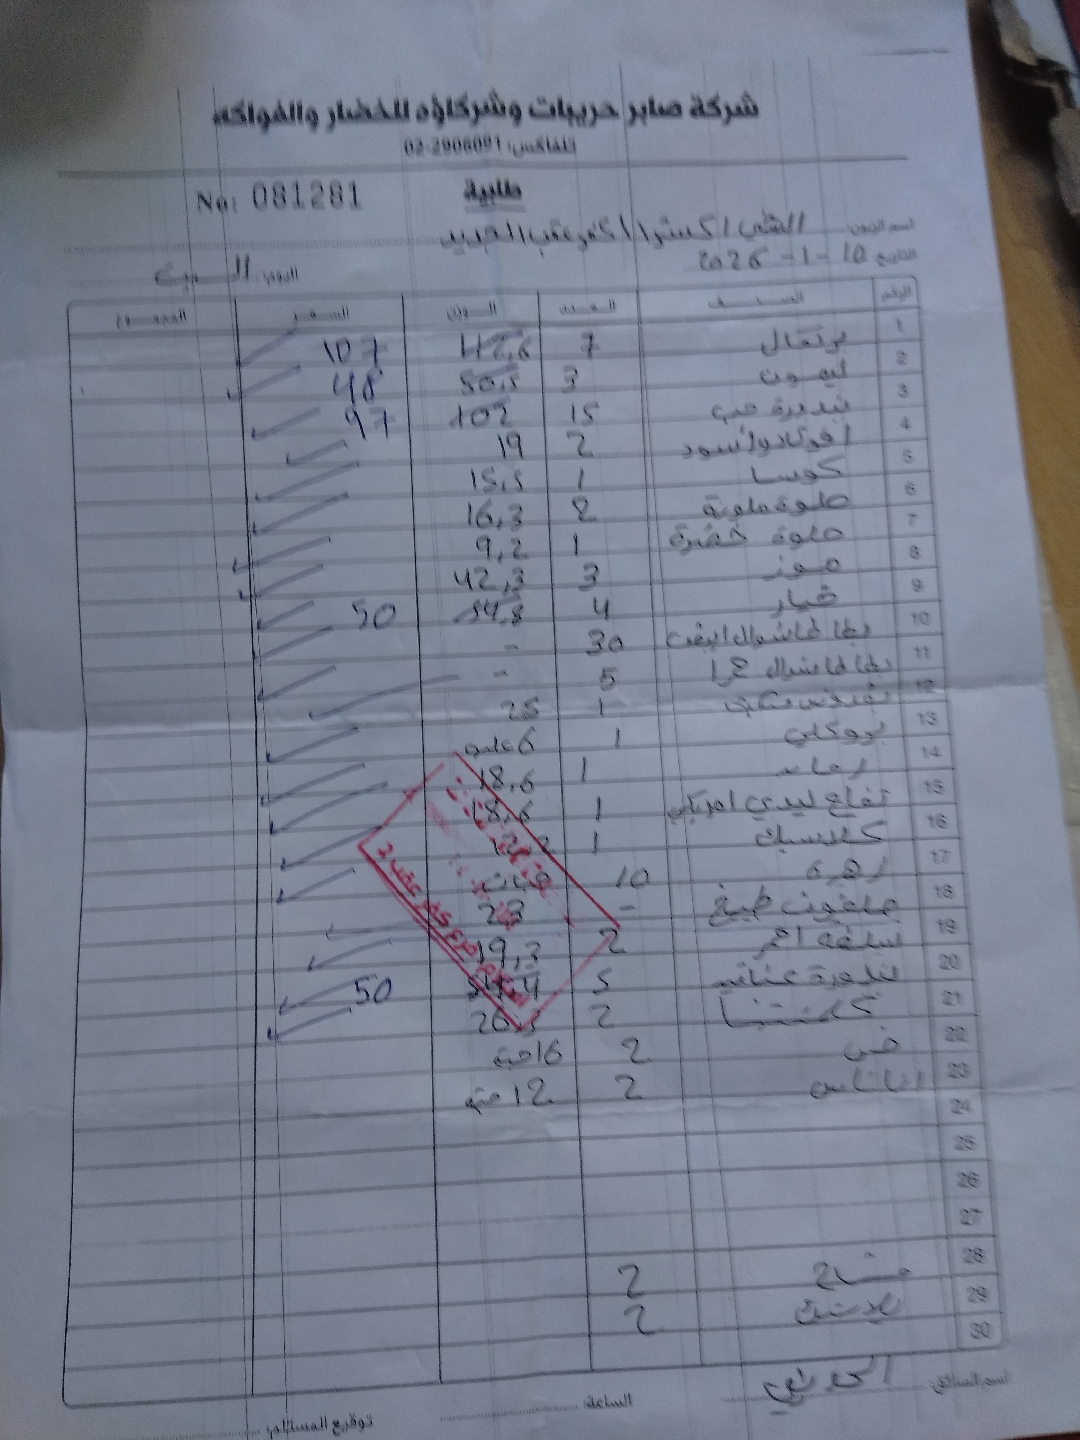 شركة صابر حريبات وشركاؤه للخضار والفواكه
تلفاكس: 02-2906091
طلبية
No: 081281
اسم الزبون: الشني اكسترا كفر عقب الجديد
التاريخ 10-1-2026 اليوم: السبت
الرقم الصنف العدد الوزن السعر المجموع
1 برتقال 7 112,6 107
2 ليمون 3 50,5 48
3 بندورة حب 15 102 97
4 افوكادو اسود 2 19
5 كوسا 1 15,5
6 حلوة ملونة 2 16,3
7 حلوة خضرة 1 9,2
8 موز 3 42,3
9 خيار 4 54,8 50
10 بطاطا شوال ابيض 30 -
11 بطاطا شوال حمرا 5 -
12 1 25
13 بروكلي 1 6
14 رمان 1 18,6
15 تفاح ليدي امريكي 1 18,6
16 كلاسيك 1
17 زهرة 10
18 ملفوف طبيخ - 23
19 احمر 2 19,3
20 بندورة عناقيد 5 50
21 كلمنتينا 2
22 خس 2 16 حبة
23 اناناس 2 12 حبة
24
25
26
27
28 2
29 2
30
اسم السائق: الساعة توقيع المستلم